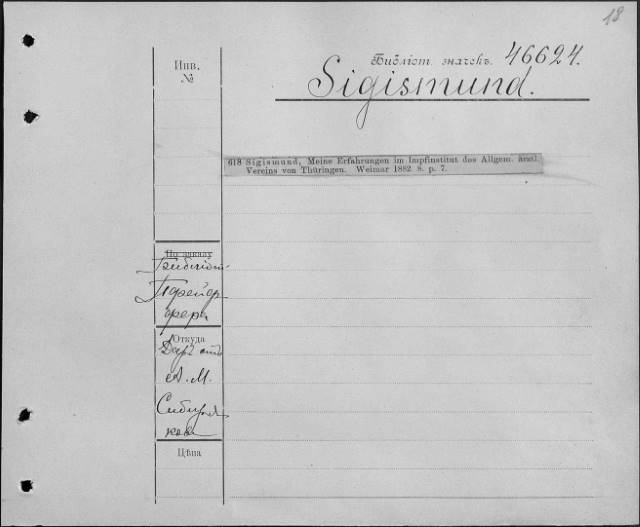 18
Инв.
№
Библіот. значекъ. 46624.
Sigismund.
618 Sigismund, Meine Erfahrungen im Impfinstitut des Allgem. ärztl.
Vereins von Thüringen. Weimar 1882 8. p. 7.
По заказу
Библіот.
Пфейф
фера
Откуда
Даръ отъ
А. М.
Сибиря
кова
Цѣна